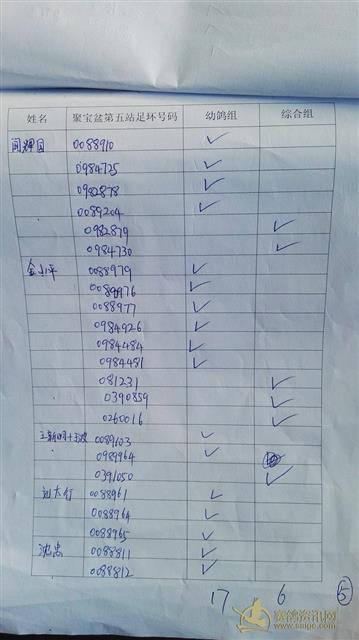 姓名 聚宝盆第五站足环号码 幼鸽组 综合组
0088910 ✓
0984725 ✓
0982878 ✓
0089204 ✓
0982879 ✓
0984730 ✓
金小平 0088979 ✓
0089976 ✓
0088977 ✓
0984926 ✓
0984484 ✓
0984481 ✓
081231 ✓
0390859 ✓
0260016 ✓
0089103 ✓
0989964 ✓
0391050 ✓
0088961 ✓
0088964 ✓
0088965 ✓
沈忠 0088811 ✓
0088812 ✓
17 6 ⑤
赛鸽资讯网
www.saige.com